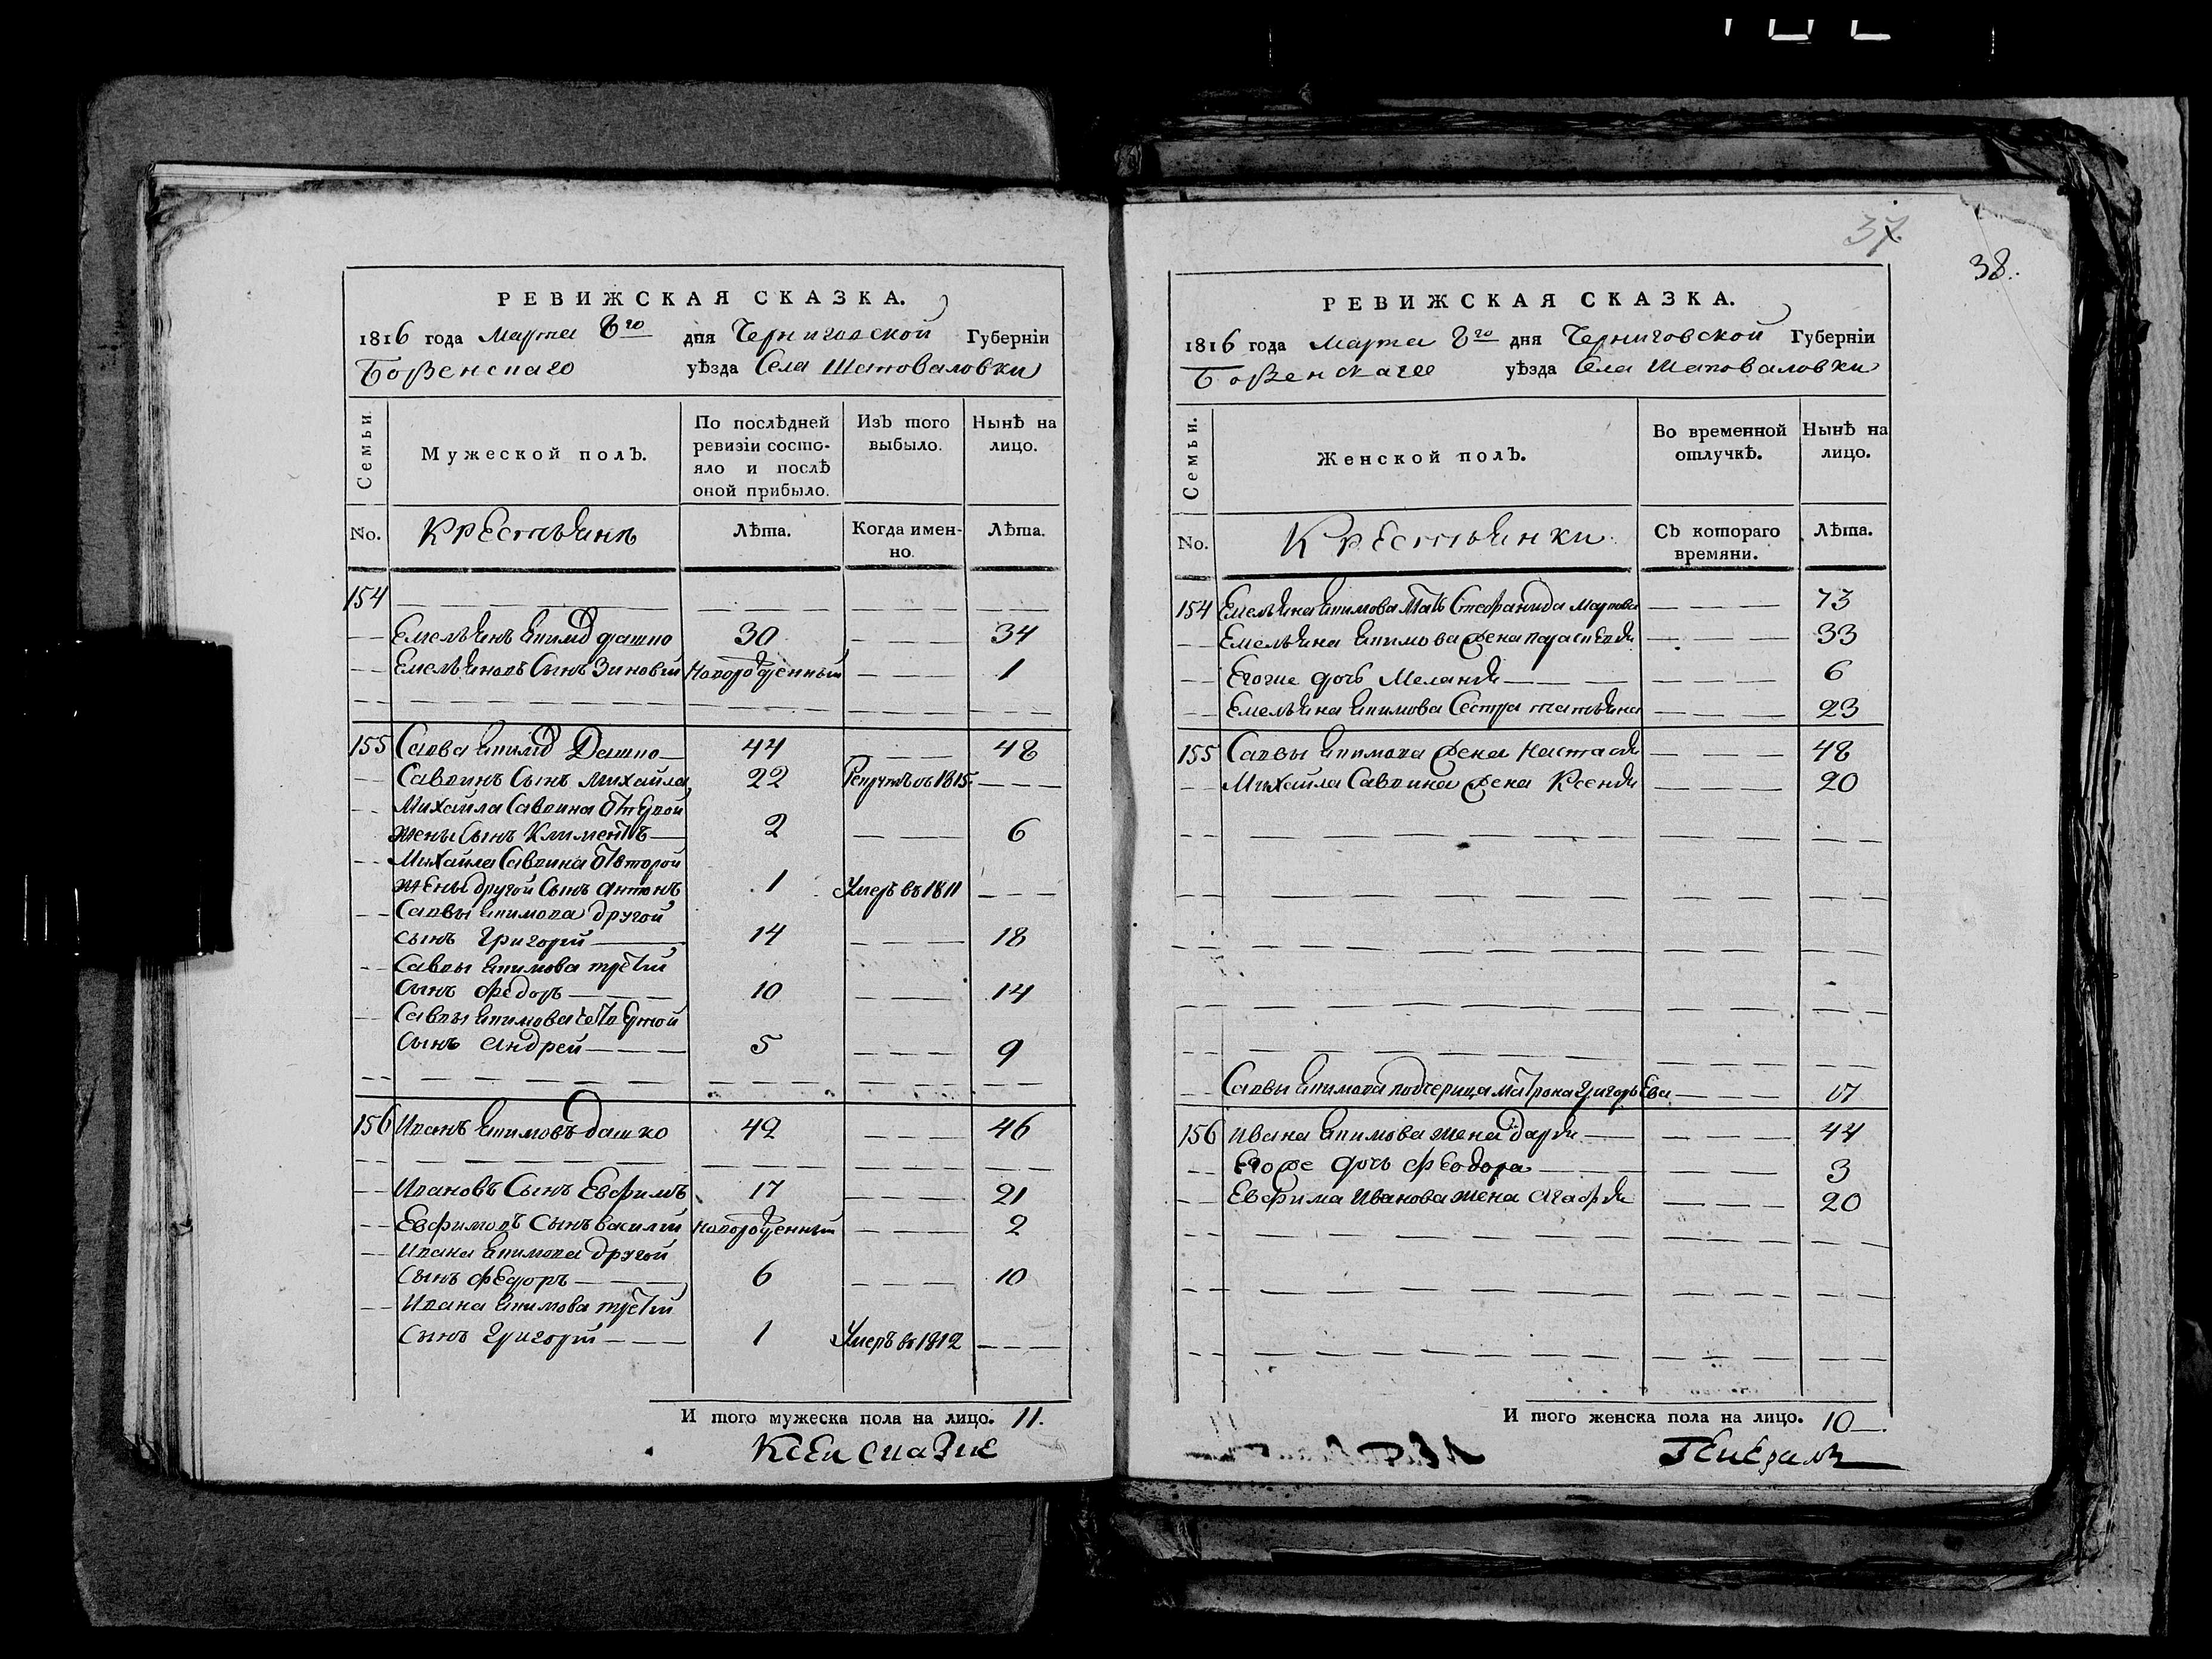 37.
38.
РЕВИЖСКАЯ СКАЗКА.
1816 года Марта 8го дня Черниговской Губернїи
Борзенскаго уѣзда Села Шаповаловки
Семьи.
Мужеской полъ.
По послѣдней ревизїи состояло и послѣ оной прибыло.
Изъ того выбыло.
Нынѣ на лицо.
No. Крестьянъ Лѣта. Когда именно. Лѣта.
154 — — —
Емельянъ Якимов Дашко 30 — — — 34
Емельяновъ Сынъ Зиновій Новорожденный — — — 1
155 Савва Якимов Дашко 44 — — — 48
Саввинъ Сынъ Михайла 22 Рекрутъ въ 1815 — — —
Михайла Саввина От первой
жены Сынъ Климентъ 2 — — — 6
Михайла Саввина От второй
жены другой Сынъ Антонъ 1 Умеръ въ 1811 — — —
Саввы Якимова другой
сынъ Григорій 14 — — — 18
Саввы Якимова третій
Сынъ Федоръ 10 — — — 14
Саввы Якимова четвертой
Сынъ Андрей 5 — — — 9
156 Иванъ Якимовъ Дашко 42 — — — 46
Ивановъ Сынъ Евфимъ 17 — — — 21
Евфимовъ Сынъ Василій Новорожденный — — — 2
Ивана Якимова другой
Сынъ Федоръ 6 — — — 10
Ивана Якимова третій
Сынъ Григорій 1 Умеръ въ 1812 — — —
И того мужеска пола на лицо. 11.
Ксей Сказке
РЕВИЖСКАЯ СКАЗКА.
1816 года Марта 8го дня Черниговской Губернїи
Борзенскаго уѣзда Села Шаповаловки
Семьи.
Женской полъ.
Во временной отлучкѣ.
Нынѣ на лицо.
No. Крестьянки Съ котораго времяни. Лѣта.
154 Емельяна Якимова Мать Стефанида Маркова — — — 73
Емельяна Якимова жена Параскевия — — — 33
Егоже дочь Меланія — — — 6
Емельяна Якимова Сестра татьяна — — — 23
155 Саввы Якимова жена Настасія — — — 48
Михайла Саввина жена Ксенія — — — 20
Саввы Якимова подчерица Матрона Григорьева — — — 17
156 Ивана Якимова жена Дарія — — — 44
Егоже дочь Феодора — — — 3
Евфима Иванова жена Агафія — — — 20
И того женска пола на лицо. 10.
Генералъ